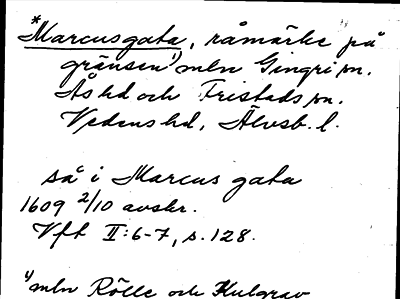 *Marcusgata, råmärke på
gränsen 1) mln Gingri sn.
Ås hd och Fristads sn.
Vedens hd, Älvsb. l.
så i Marcus gata
1609 2/10 avskr.
Vft II:6-7, s. 128.
1) mln Rölle och Kulgrav